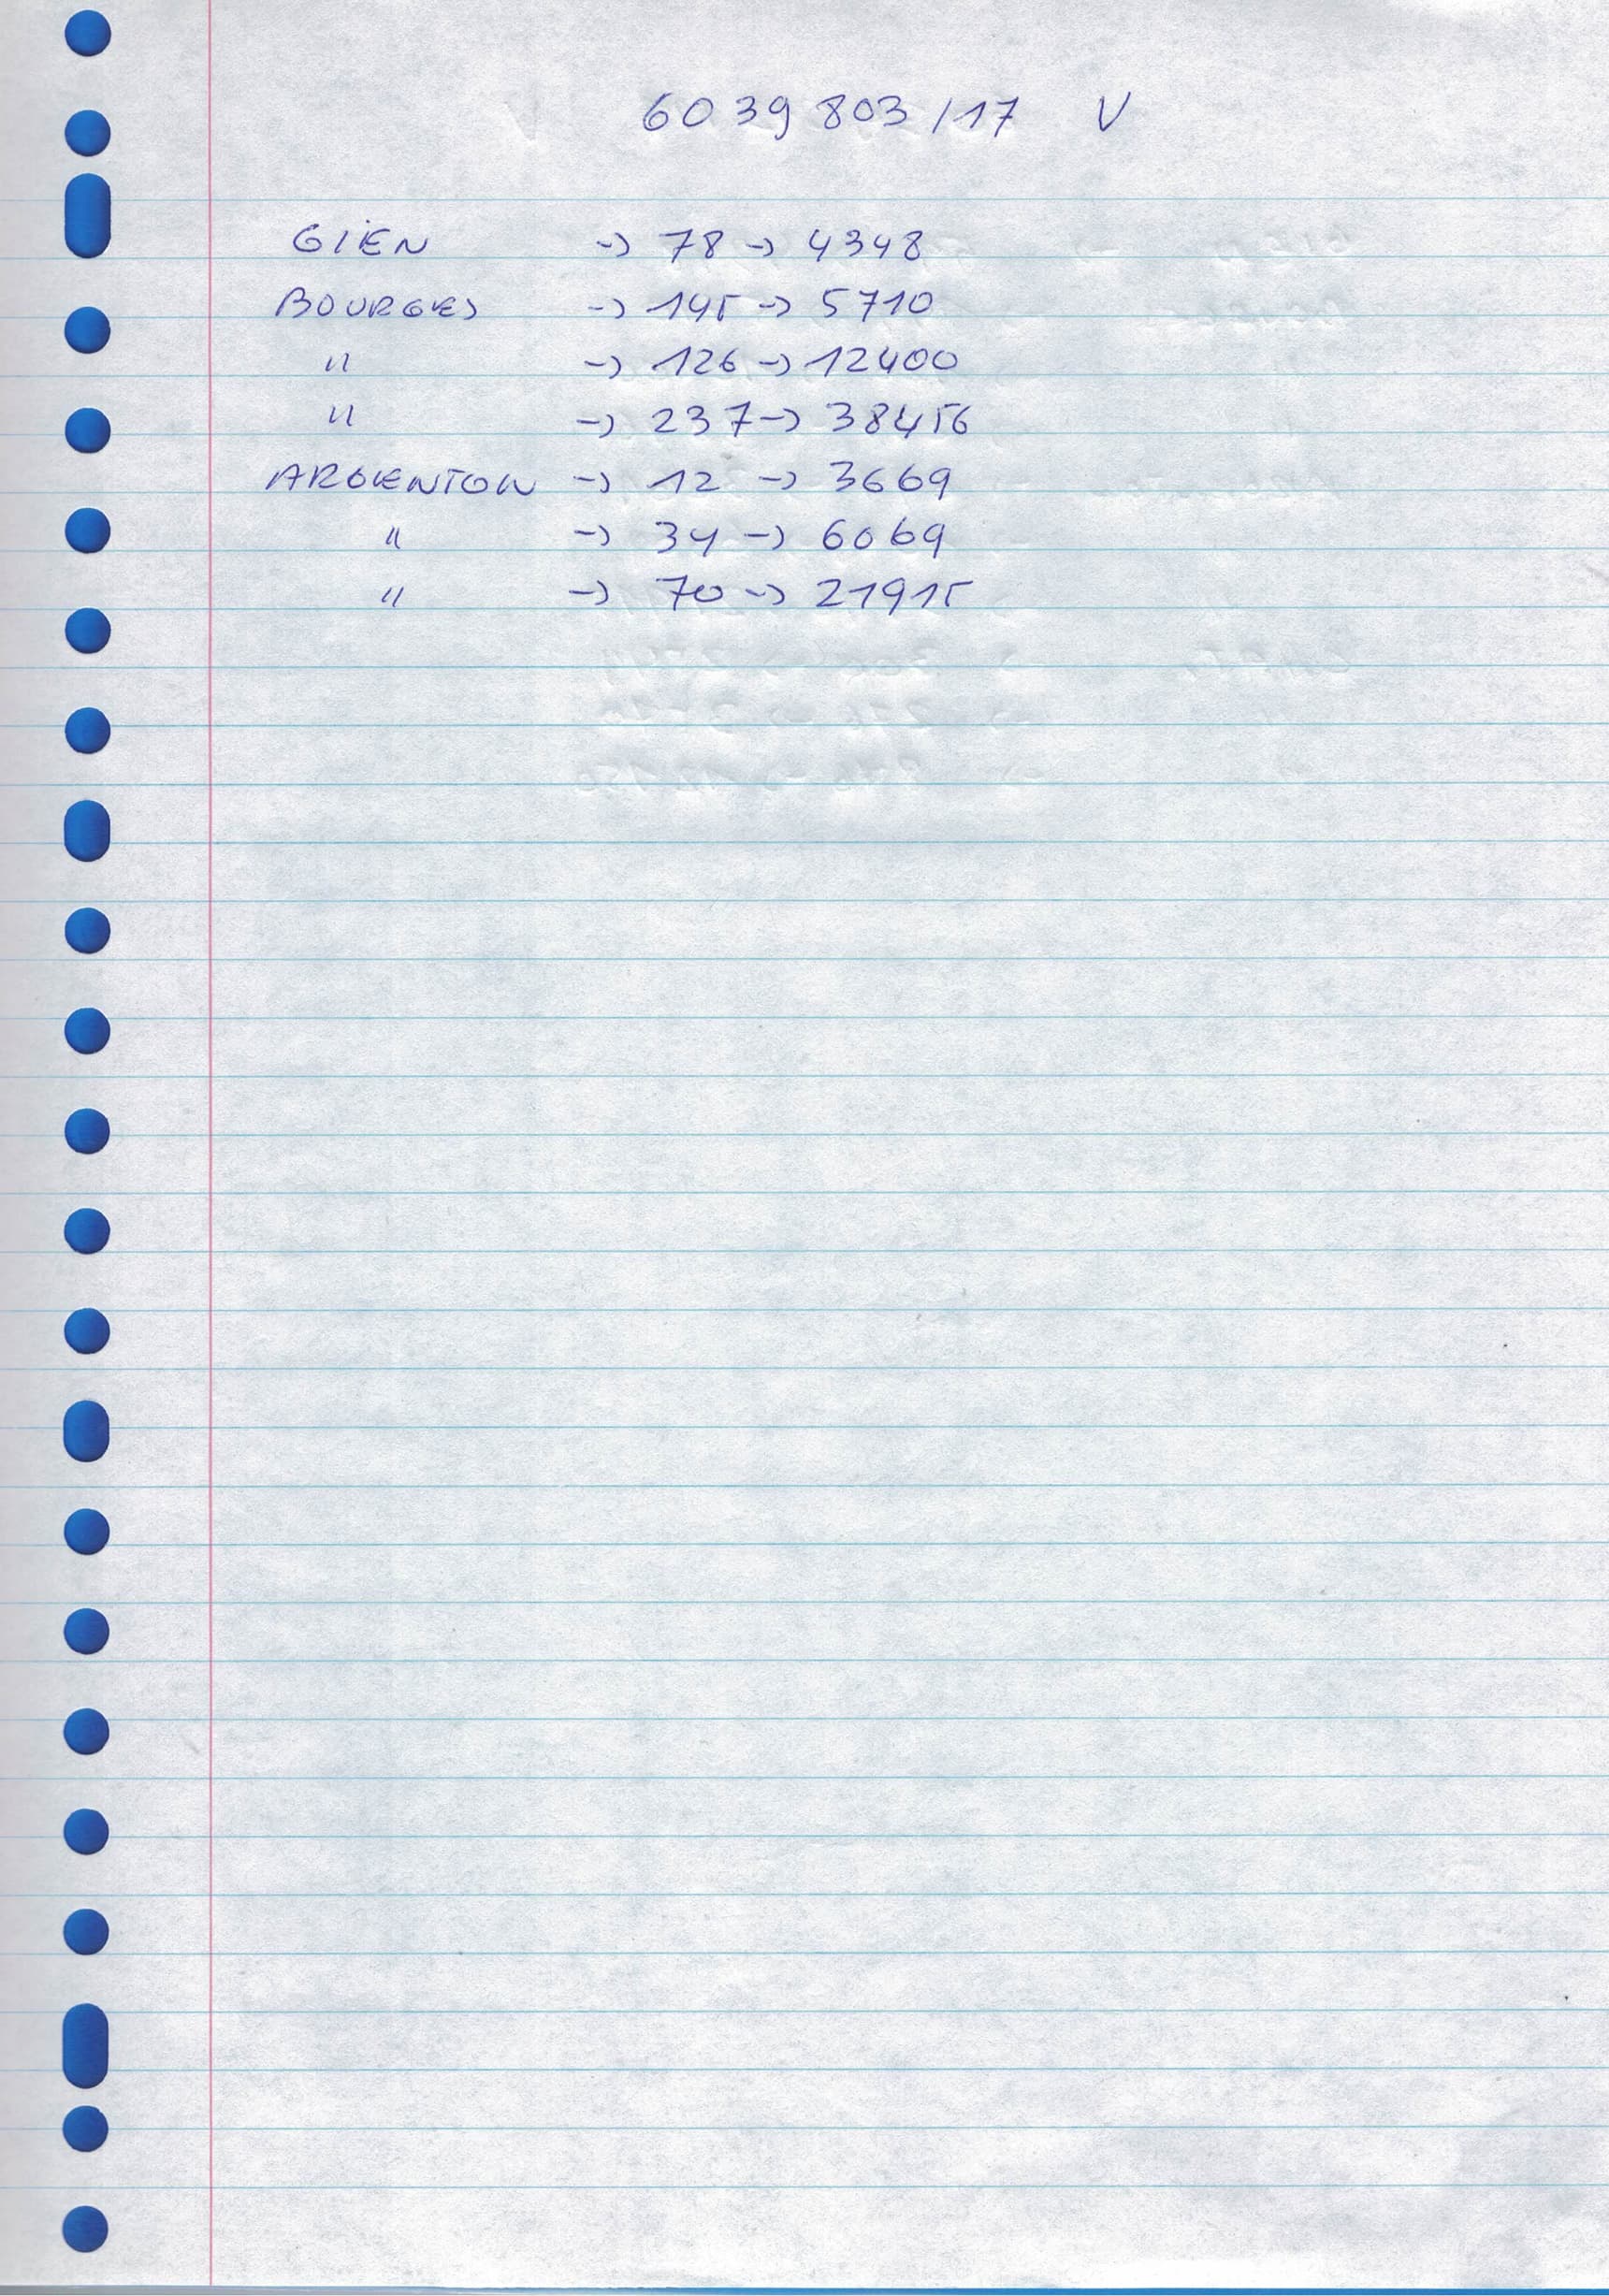 6039803/17 V
GIEN -> 78 -> 4348
BOURGES -> 145 -> 5710
" -> 126 -> 12400
" -> 237 -> 38456
ARGENTON -> 12 -> 3669
" -> 34 -> 6069
" -> 70 -> 21915